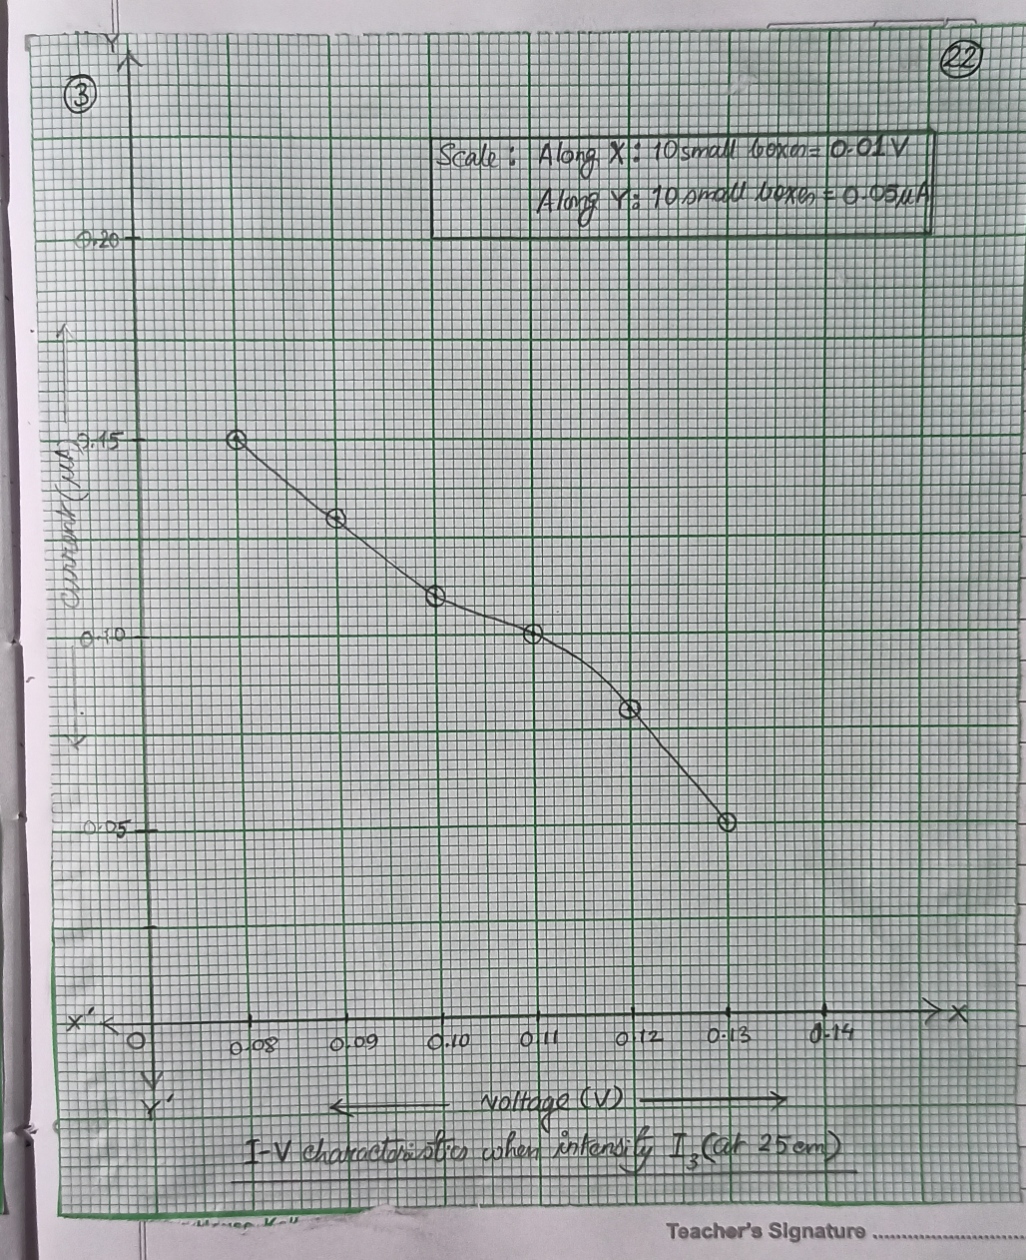 Y
3
22
Scale: Along X: 10 small boxes = 0.01V
Along Y: 10 small boxes = 0.05μA
0.20
0.15
current (μA)
0.10
0.05
X'
X
O
0.08 0.09 0.10 0.11 0.12 0.13 0.14
Y'
voltage (V)
I-V characteristics when intensity I₃ (at 25cm)
Teacher's Signature